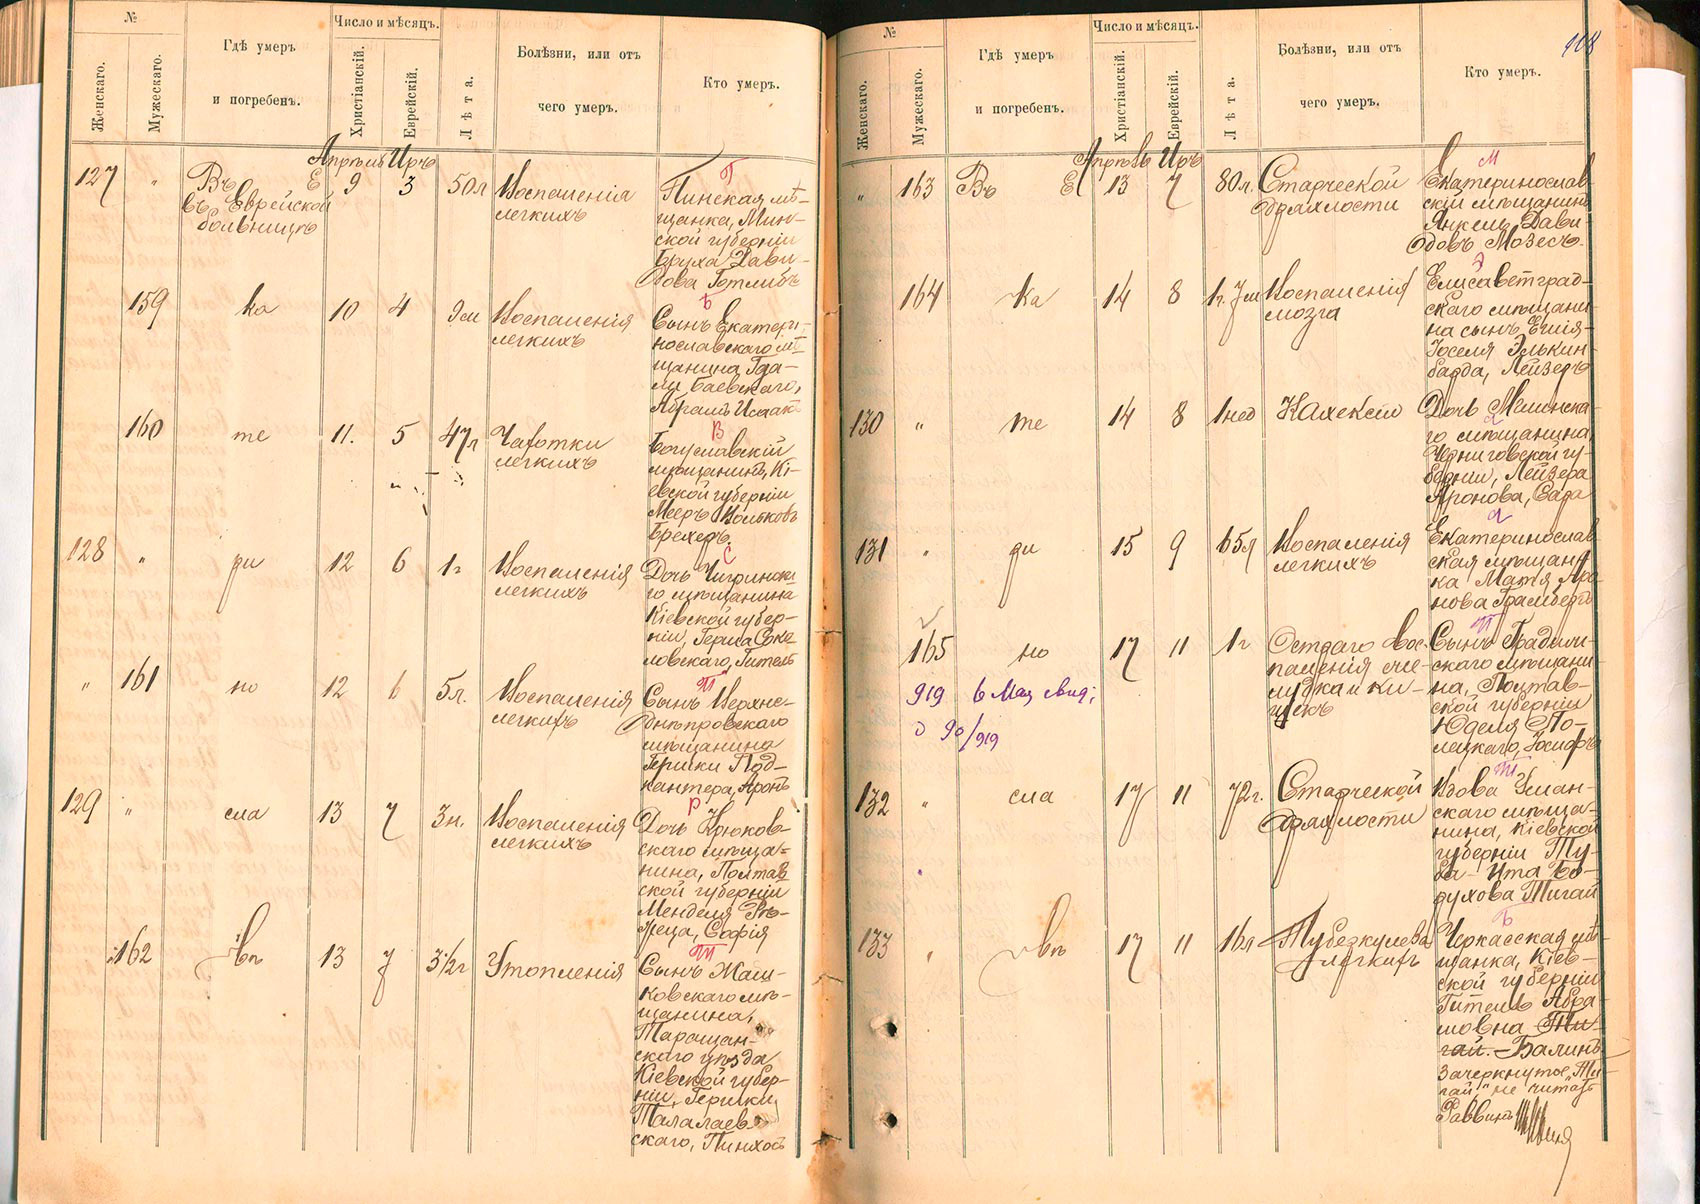 №
Женскаго.
Мужескаго.
Гдѣ умеръ
и погребенъ.
Число и мѣсяцъ.
Христіанскій.
Еврейскій.
Лѣта.
Болѣзни, или отъ
чего умеръ.
Кто умеръ.
Апрѣль Иръ
127 " Въ Е 9 3 50л Воспаленія
въ Еврейской легкихъ
больницѣ
П
Пинская мѣ-
щанка, Мин-
ской губерніи
Бруха Дави-
дова Готлибъ
159 ка 10 4 9м Воспаленія
легкихъ
Б
Сынъ Екатери-
нославскаго мѣ-
щанина
Баевскаго,
Абрамъ Исаакъ
160 те 11. 5 47л Чахотки
легкихъ
В
Богуславскій
мѣщанинъ, Кі-
евской губерніи
Мееръ Вольковъ
Брехеръ.
128 " ри 12 6 1г Воспаленія
легкихъ
С
Дочь Чигиринска-
го мѣщанина
Кіевской губер-
ніи, Герша Соко-
ловскаго, Гитель
" 161 но 12 6 5л. Воспаленія
легкихъ
Сынъ Верхне-
днѣпровскаго
мѣщанина
Гершки Под-
кантера, Аронъ
129 " сла 13 7 3н. Воспаленія
легкихъ
Р
Дочь Крюков-
скаго мѣща-
нина, Полтав
ской губерніи
Менделя
София
162 вѣ 13 7 3½г Утопленія
Т
Сынъ Жаш-
ковскаго мѣ-
щанина,
Таращан-
скаго уѣзда
Кіевской губер-
ніи, Гершки
Талалаев-
скаго, Пинхосъ
108
№
Женскаго.
Мужескаго.
Гдѣ умеръ
и погребенъ.
Число и мѣсяцъ.
Христіанскій.
Еврейскій.
Лѣта.
Болѣзни, или отъ
чего умеръ.
Кто умеръ.
Апрѣль Иръ
" 163 Въ Е 13 7 80л. Старческой
дряхлости
М
Екатеринослав-
скій мѣщанинъ
Янкель Дави
довъ Мозесъ.
164 ка 14 8 1г. 7м Воспаленія
мозга
Елисаветград-
скаго мѣщани-
на сынъ
Іоселя Элькин-
барда, Лейзеръ
130 " те 14 8 1нед Кахексіи
Дочь Мглинска-
го мѣщанина,
Черниговской гу-
берніи, Лейзера
Аронова, Сара
131 " ри 15 9 65л Воспаленія
легкихъ
Екатеринослав-
ская мѣщан-
ка Матя Аро
нова Грамбергъ
165 но 17 11 1г Остраго вос-
паленія же-
лудка и ки-
шекъ
П
Сынъ Градиж-
скаго мѣщани-
на, Полтав-
ской губерніи
Юделя По-
лецкаго, Іосифъ
919 6 Мая свид;
90/919
132 " сла 17 11 72г. Старческой
дряхлости
Т
Вдова Уман-
скаго мѣща-
нина, Кіевской
губерніи Ту-
ба-Ита Бо-
рухова Тигай
133 " вѣ 17 11 16л Туберкулеза
легкихъ
Б
Черкасская мѣ-
щанка, Кіев-
ской губерніи
Гитель Абра-
мовна Ти-
гай. – Балинъ
Зачеркнутое "Ти-
гай" не читать
Раввинъ